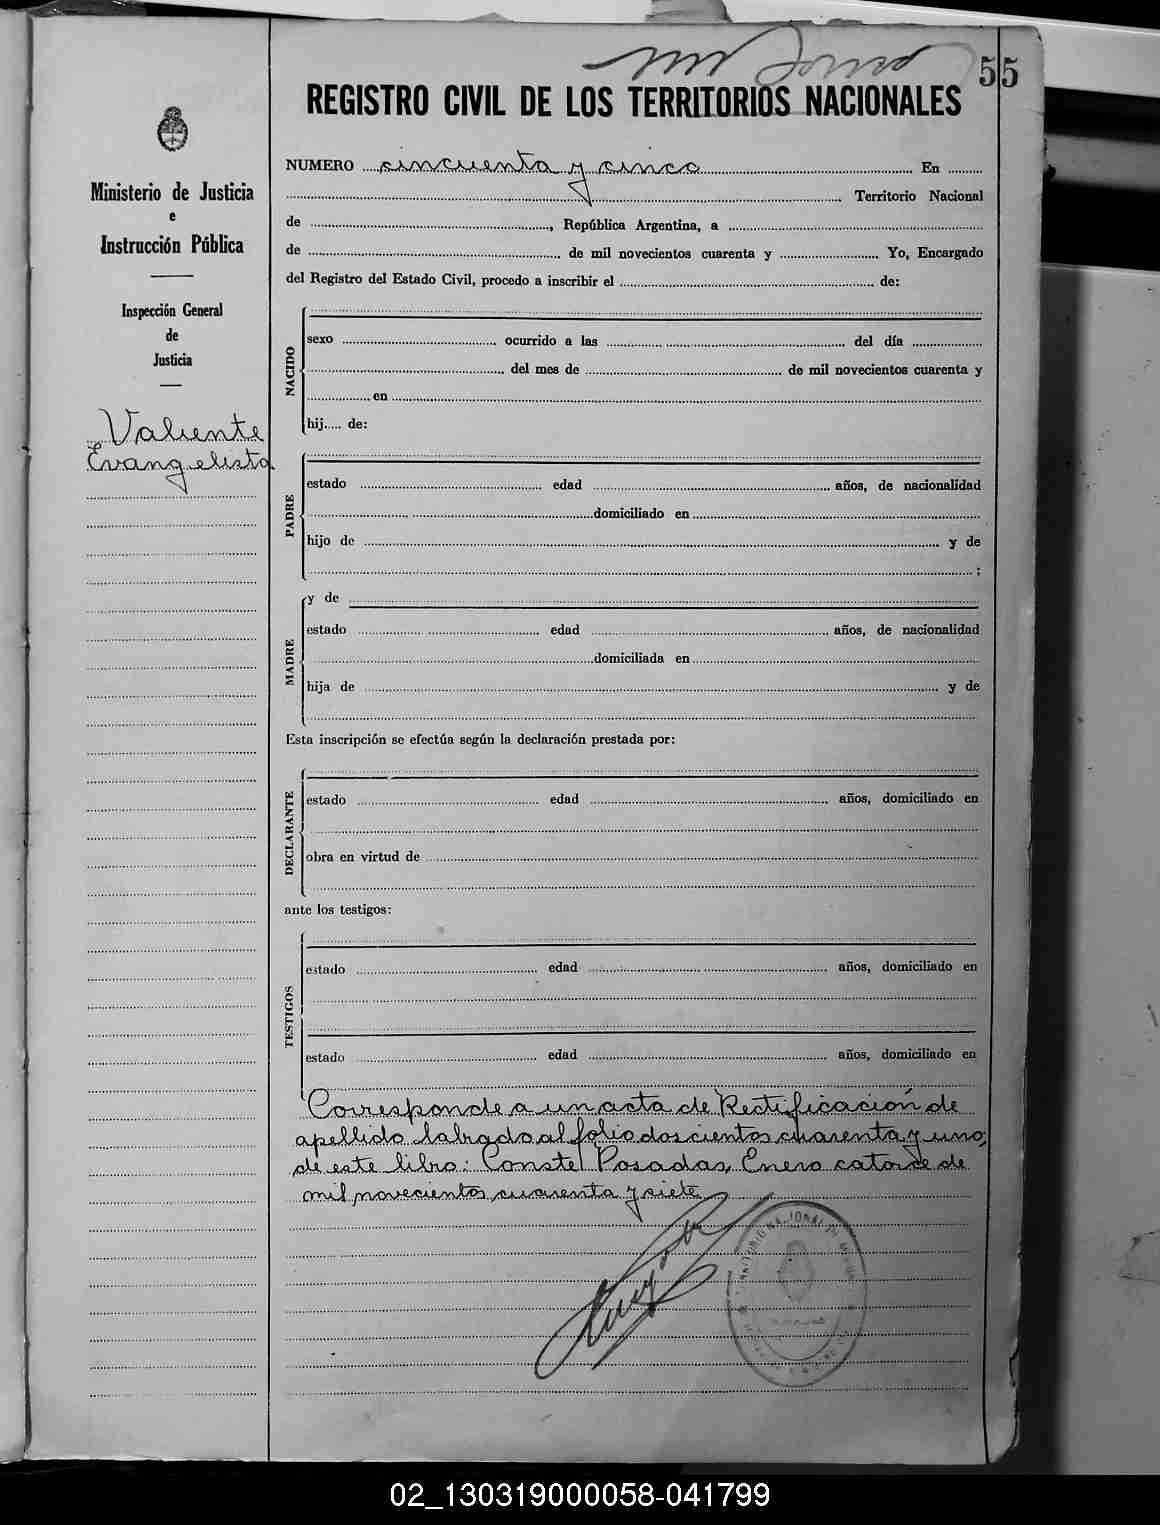 55
REGISTRO CIVIL DE LOS TERRITORIOS NACIONALES
Ministerio de Justicia
e
Instrucción Pública
Inspección General
de
Justicia
Valiente
Evangelista
NUMERO cincuenta y cinco En
Territorio Nacional
de , República Argentina, a
de de mil novecientos cuarenta y Yo, Encargado
del Registro del Estado Civil, procedo a inscribir el de:
NACIDO
sexo ocurrido a las del día
del mes de de mil novecientos cuarenta y
en
hij.... de:
PADRE
estado edad años, de nacionalidad
domiciliado en
hijo de y de
;
MADRE
y de
estado edad años, de nacionalidad
domiciliada en
hija de y de
Esta inscripción se efectúa según la declaración prestada por:
DECLARANTE
estado edad años, domiciliado en
obra en virtud de
ante los testigos:
TESTIGOS
estado edad años, domiciliado en
estado edad años, domiciliado en
Corresponde a un acta de Rectificación de
apellido labrado al folio doscientos cuarenta y uno,
de este libro: Conste! Posadas, Enero catorce de
mil novecientos cuarenta y siete
02_130319000058-041799